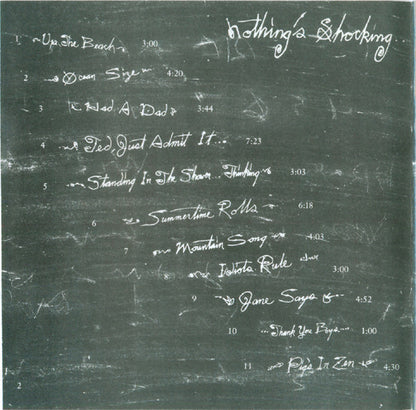 Nothing's Shocking
1 Up The Beach 3:00
2 Ocean Size 4:20
3 Had A Dad 3:44
4 Ted, Just Admit It... 7:23
5 Standing In The Shower... Thinking 3:03
6 Summertime Rolls 6:18
7 Mountain Song 4:03
Idiots Rule 3:00
9 Jane Says 4:52
10 Thank You Boys 1:00
11 Pigs In Zen 4:30
1
2